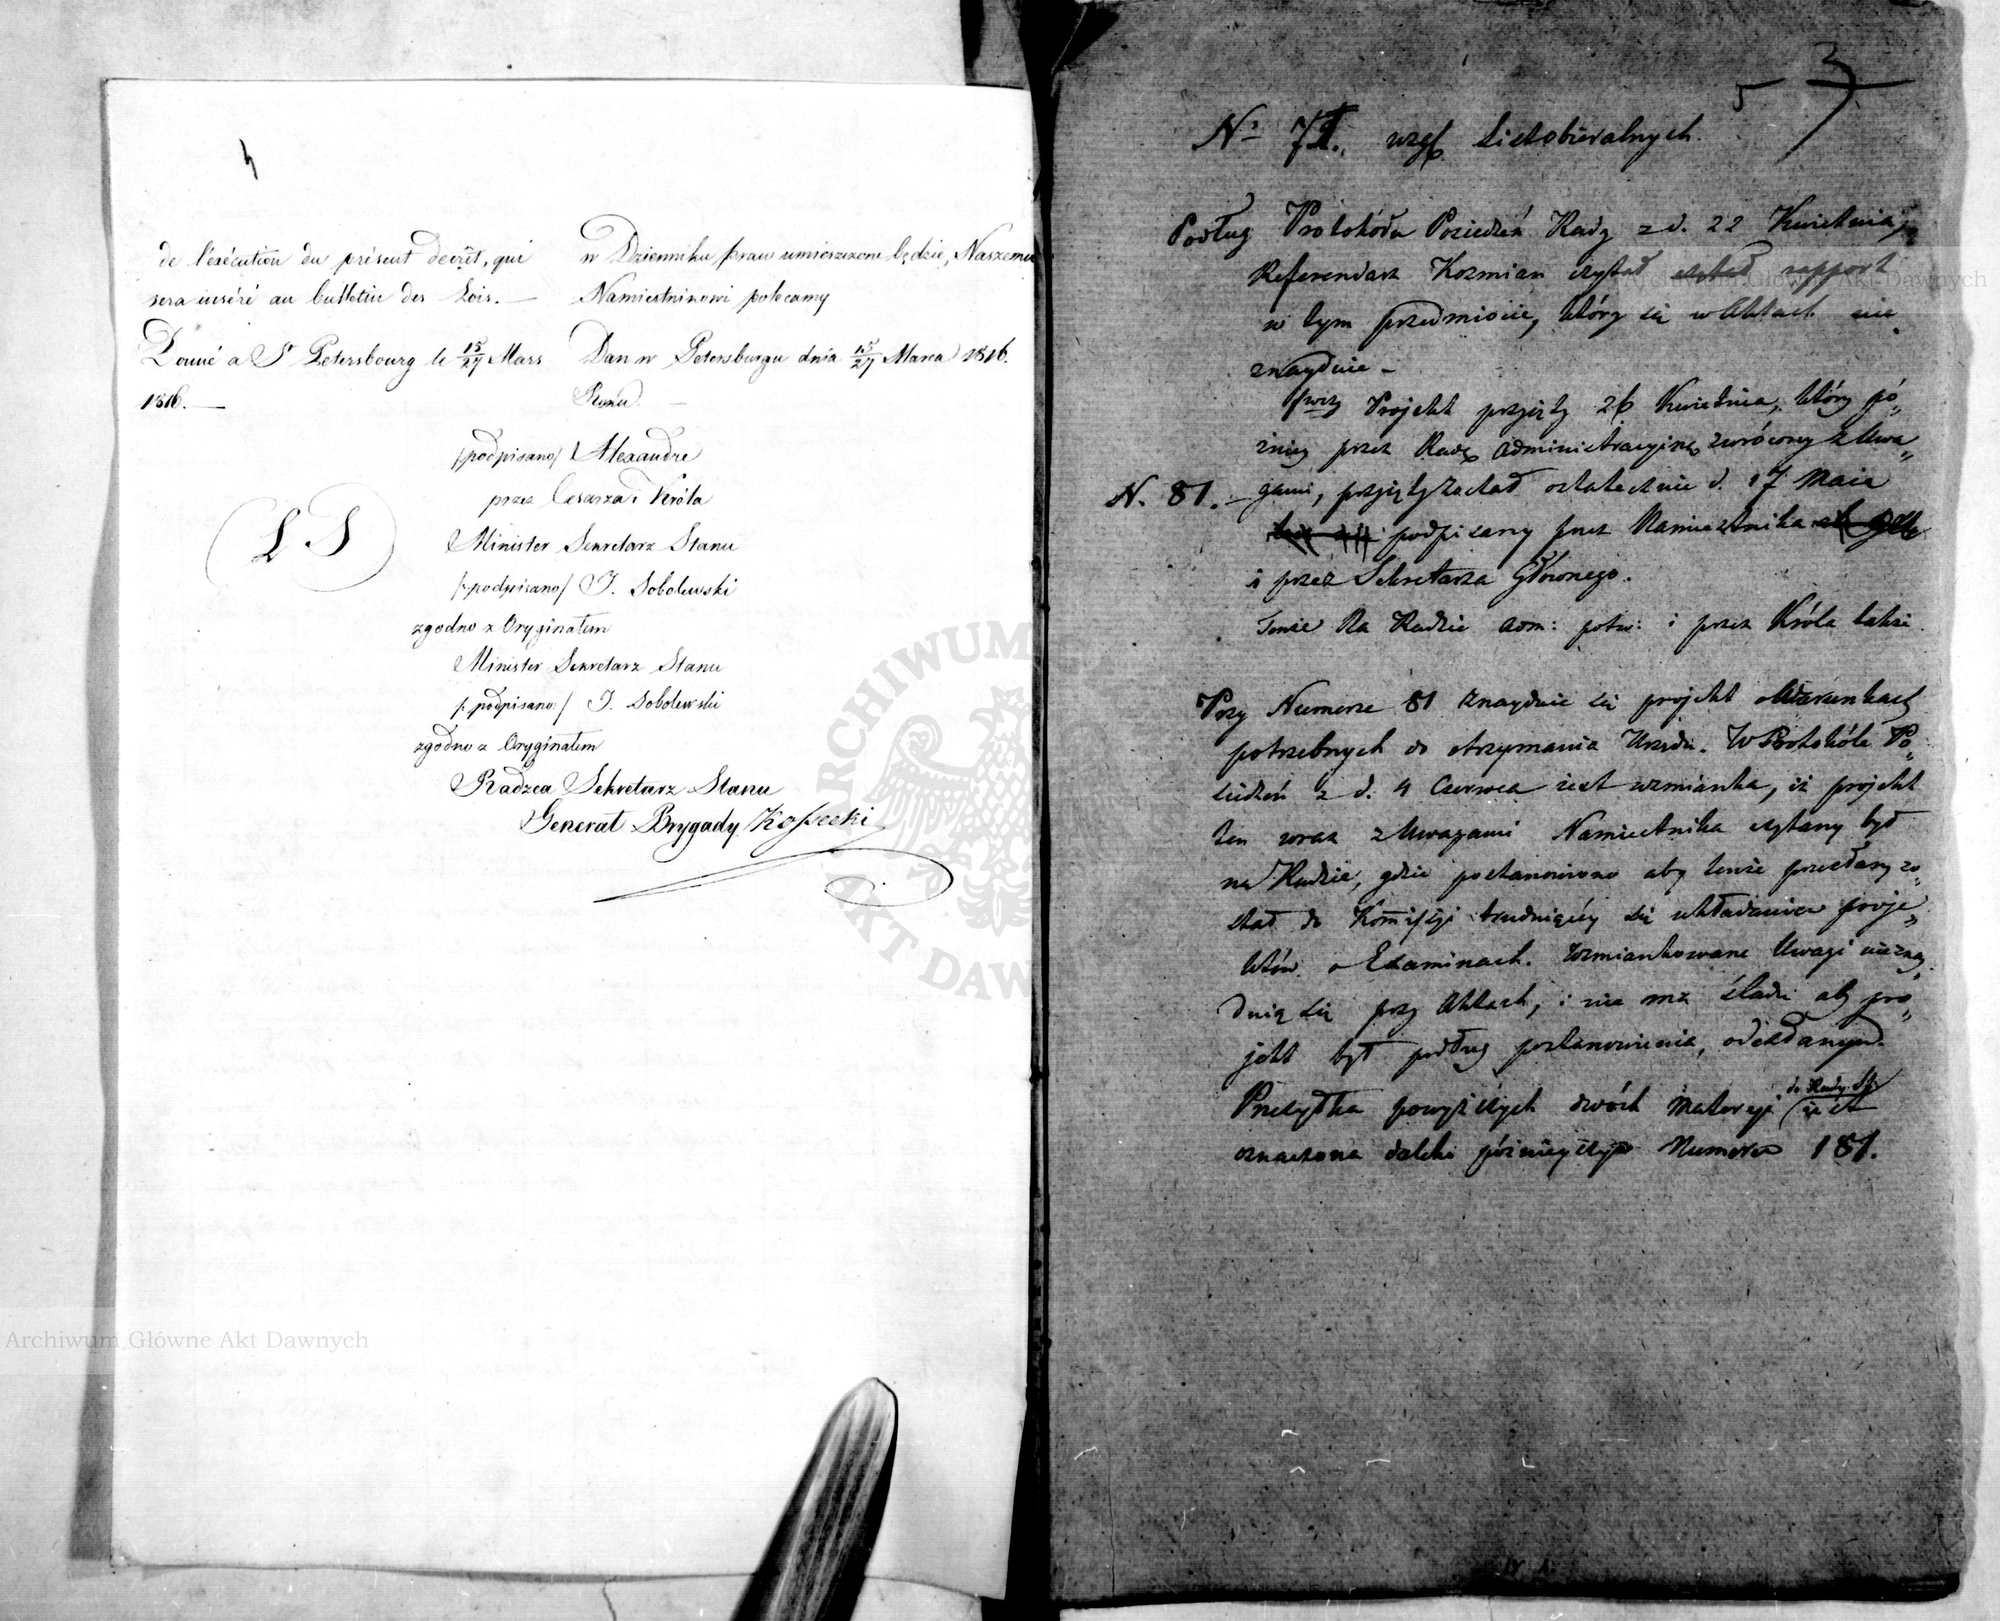 de l'exécution du présent décret, qui
sera inséré au bulletin des Lois. —
Donné a St Petersbourg le 15/27 Mars
1816. —
w Dzienniku praw umieszczone będzie, Naszemu
Namiestnikowi polecamy
Dan w Petersburgu dnia 15/27 Marca 1816.
Roku. —
/podpisano/ Alexandre
przez Cesarza i Króla
Minister Sekretarz Stanu
/:podpisano/ I. Sobolewski
zgodno z Oryginałem
Minister Sekretarz Stanu
/:podpisano:/ I. Sobolewski
zgodno z Oryginałem
Radzca Sekretarz Stanu
Generał Brygady Kossecki
L S
5 3
No 71. wzgl. Listobieralnych.
Podług Protokółu Posiedzeń Rady z d. 22 Kwietnia,
Referendarz Kozmian czytał rapport
w tym przedmiocie, który się w Aktach nie
znayduie –
Projekt przyięty 26 Kwietnia, który pó„
zniey przez Radę Administracyiną zwrócony z Uwa„
N. 81. – gami, przyięty został ostatecznie d. 17 Maia
i podpisany przez Namiestnika
i przez Sekretarza Głównego.
Tenże na Radzie Adm: potw: i przez Króla także
Przy Numerze 81 znayduie się projekt o Warunkach
potrzebnych do otrzymania Urzędu. W Protokóle Po„
siedzeń z d. 4 Czerwca iest wzmianka, iż projekt
ten wraz z Uwagami Namiestnika czytany był
na Radzie, gdzie postanowiono aby tenże przesłany zo„
stał do Kommissyi trudniącéy się układaniem proje„
któw o Examinach. Wzmiankowane Uwagi nie znay„
duią się przy Aktach, i nie ma śladu aby pro„
jekt był podług postanowienia, odesłanym.
Przesyłka powyższych dwóch Materyi do Rady St. iest
oznaczona daleko późnieyszym Numerem 181.
Archiwum Główne Akt Dawnych
Archiwum Główne Akt Dawnych
ARCHIWUM
AKT DAW